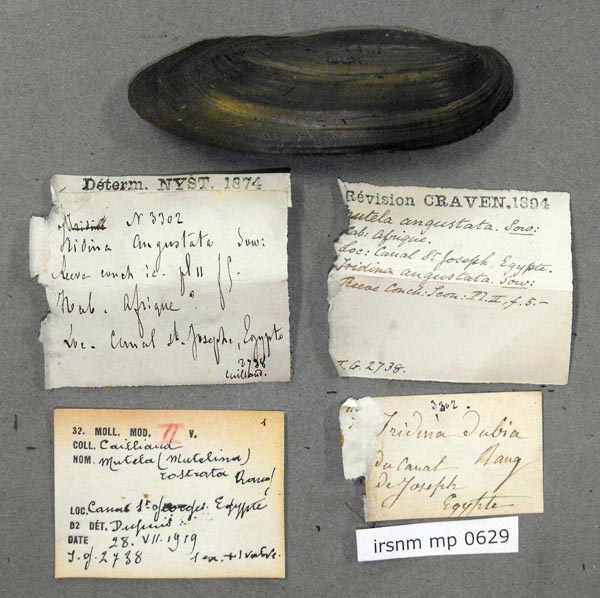 Déterm. NYST. 1874
N 3302
Iridina Angustata Sow:
Reeve conch ic. pl 11 f 5.
Hab. Afrique
Loc. Canal St. Josephe, Egypte
2738
Cailliaud.
Révision CRAVEN. 1894
Mutela angustata. Sow:
Hab: Afrique.
Loc: Canal St Joseph, Egypte.
Iridina angustata. Sow:
Reeve Conch: Icon: Pl. II. f. 5.-
I. G. 2738.
32. MOLL. MOD. II V. 1
COLL. Cailliaud
NOM. Mutela (Mutelina)
rostrata Rang
LOC. Canal St Egypte
B2 DÉT. Dupuis
DATE 28. VII. 1919
I.g. 2738 1 ex. + 1 valve.
3302.
Iridina dubia
Rang
du Canal
de Joseph
Egypte
irsnm mp 0629